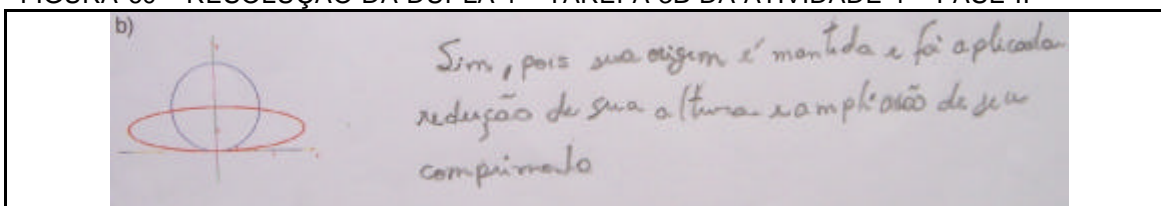 b)
Sim, pois sua origem é mantida e foi aplicada
redução de sua altura e ampliação de seu
comprimento